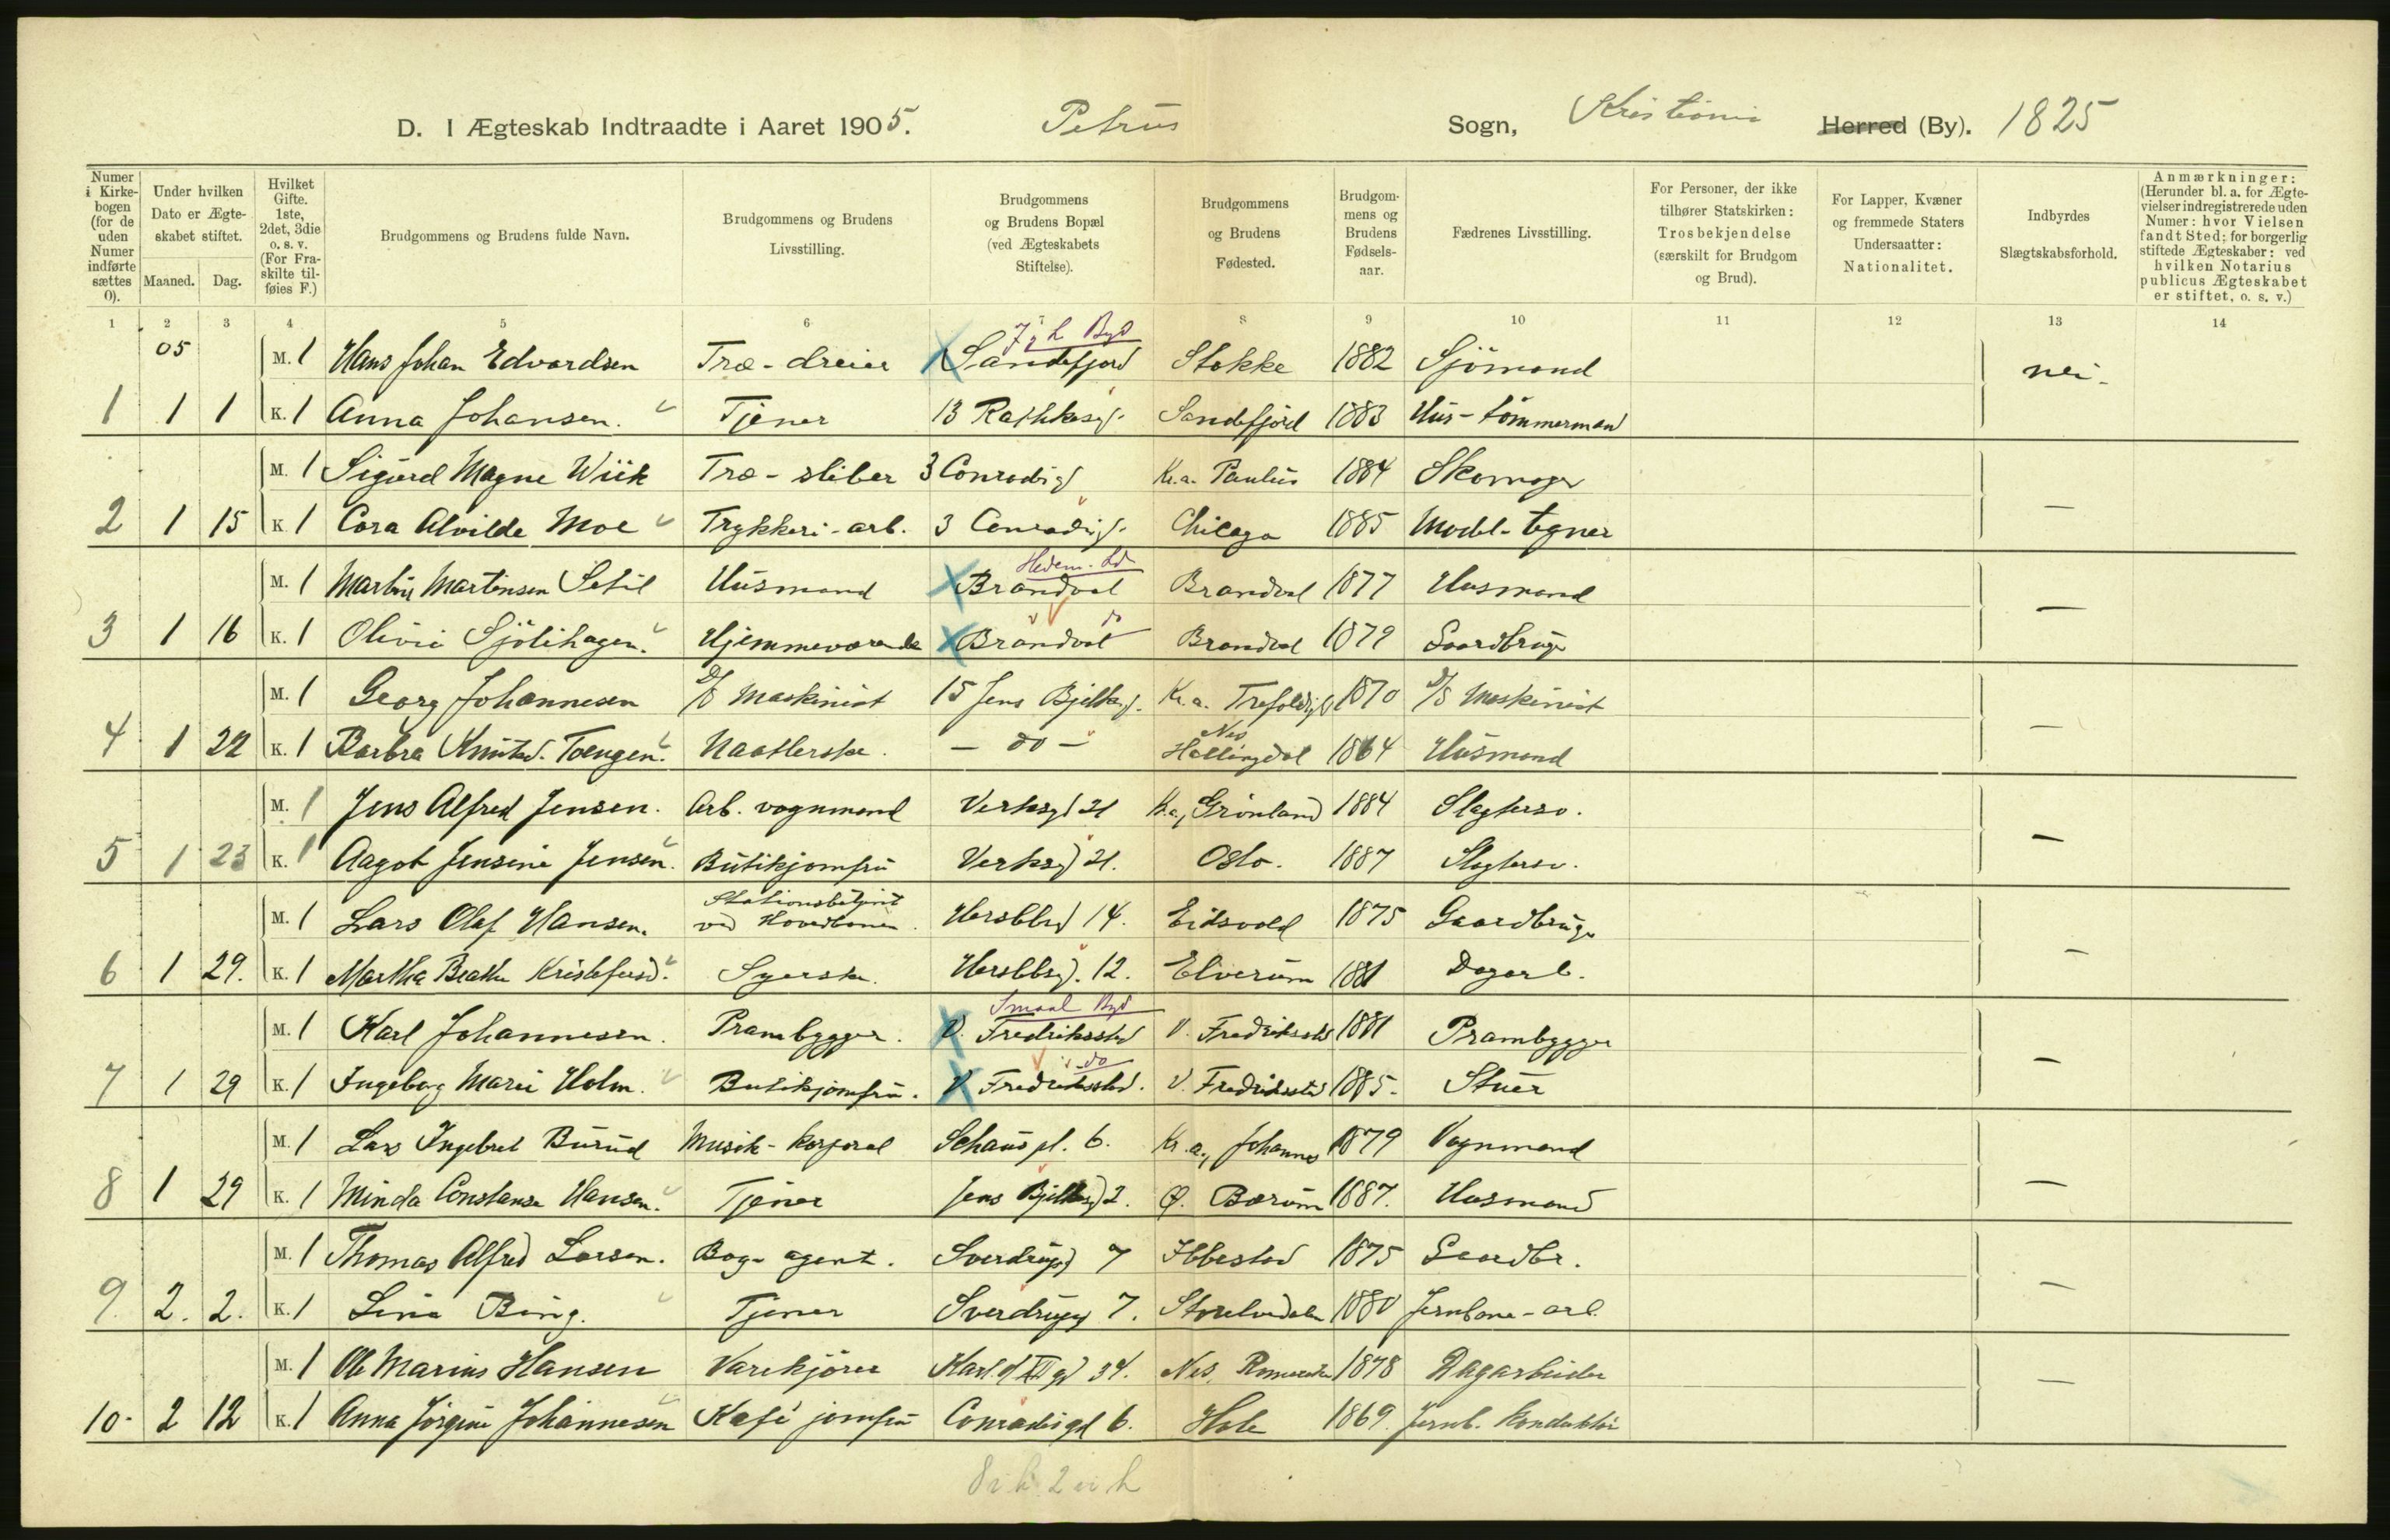 D. I Ægteskab Indtraadte i Aaret 1905. Petrus Sogn, Kristiania Herred (By). 1825
Numer i Kirkebogen (for de uden Numer indførte sættes 0).
Under hvilken Dato er Ægteskabet stiftet.
Maaned. Dag.
Hvilket Gifte. 1ste, 2det, 3die o. s. v. (For Fraskilte tilføies F.)
Brudgommens og Brudens fulde Navn.
Brudgommens og Brudens Livsstilling.
Brudgommens og Brudens Bopæl (ved Ægteskabets Stiftelse).
Brudgommens og Brudens Fødested.
Brudgommens og Brudens Fødselsaar.
Fædrenes Livsstilling.
For Personer, der ikke tilhører Statskirken: Trosbekjendelse (særskilt for Brudgom og Brud).
For Lapper, Kvæner og fremmede Staters Undersaatter: Nationalitet.
Indbyrdes Slægtskabsforhold.
Anmærkninger: (Herunder bl. a. for Ægtevielser indregistrerede uden Numer: hvor Vielsen fandt Sted; for borgerlig stiftede Ægteskaber: ved hvilken Notarius publicus Ægteskabet er stiftet, o. s. v.)
1 2 3 4 5 6 7 8 9 10 11 12 13 14
05
M. 1 Hans Johan Edvardsen Træ-dreier Sandefjord Stokke 1882 Sjömand nei-
1 1 1 K. 1 Anna Johansen. Tjener 13 Rathkesg. Sandefjord 1883 Hus-tömmermand
M. 1 Sigurd Magne Wiik Træ-sliber 3 Conradisg Kr.a. Paulus 1884 Skomager
2 1 15 K. 1 Cora Alvilde Moe Trykkeri-arb. 3 Conradisg. Chicago 1885 Model-tegner —
Hedem.
M. 1 Martin Martinsen Husmand Brandval Brandval 1877 Husmand
3 1 16 K. 1 Olivie Sjölihagen. Hjemmeværende Brandval do Brandval 1879 Gaardbruger —
M. 1 Georg Johannesen D/S Maskinist 15 Jens Bjelkesg. Kr.a. Trefoldigh 1870 D/S Maskinist
4 1 22 K. 1 Barbra Knutsd. Toengen. Naatlerske. — do — Nes Hallingdal 1864 Husmand —
M. 1 Jens Alfred Jensen. Arb. vognmand Verksgd 21 Kr.a, Grönland 1884 Slagtersv.
5 1 23 K. 1 Aagot Jensine Jensen. Butikjomfru Verksgd 21. Oslo. 1887 Slagtersv. —
M. 1 Lars Olaf Hansen. Stationsbetjent ved Hovedbanen. Herslbsgd 14. Eidsvold 1875 Gaardbruger
6 1 29. K. 1 Martha Beathe Kristofersd. Syerske. Herslbsgd. 12. Elverum 1881 Dagarb. —
Smaal Byd
M. 1 Karl Johannesen. Prambygger. V. Fredriksstad V. Fredriksstad 1881 Prambygger
7 1 29 K. 1 Ingeborg Marie Holm. Butikjomfru. V. Fredriksstad. do V. Fredriksstad 1885. Stuer —
M. 1 Lars Ingebret Burud Musik-korporal Schaus pl. 6. Kr.a., Johannes 1879 Vognmand
8 1 29 K. 1 Minda Constanse Hansen. Tjener Jens Bjelkesgd 2. Ø. Bærum 1887. Husmand —
M. 1 Thomas Alfred Larsen. Bog-agent. Sverdrupsgd 7 Ibbestad 1875 Gaardbr.
9. 2. 2. K. 1 Lina Bing. Tjener Sverdrupsgd 7. Storelvdalen 1880 Jernbane-arb. —
M. 1 Ole Marius Hansen Varekjörer Karl d XII gd 34. Nes. Romerike 1878 Dagarbeider
10- 2 12 K. 1 Anna Jörgine Johannesen Kafé jomfru Conradisgd 6. Hole 1869. Jernb. konduktör —